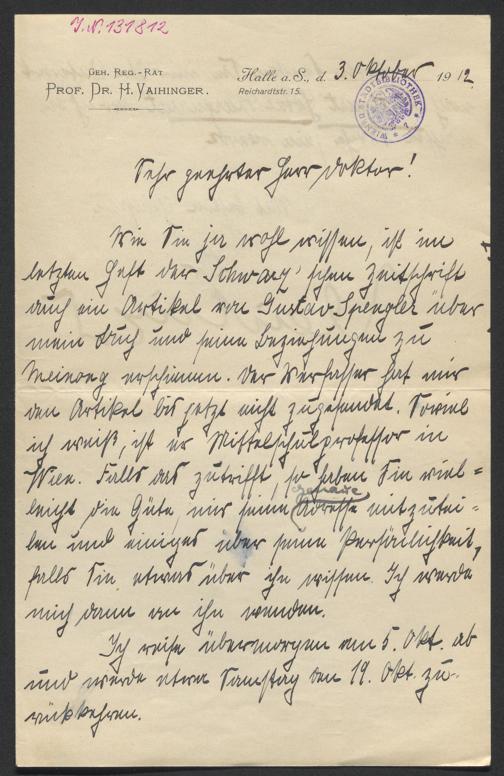 J.N. 131812
GEH. REG.-RAT
PROF. DR. H. VAIHINGER.
Halle a.S., d. 3. Oktober 1912.
Reichardtstr. 15.
WIENER STADTBIBLIOTHEK
Sehr geehrter Herr Doktor!
Wie Sie ja wohl wissen, ist im
letzten Heft der Schwarz'schen Zeitschrift
auch ein Artikel von Gustav Spengler über
mein Buch und seine Beziehungen zu
Meinong erschienen. Der Verfasser hat mir
den Artikel bis jetzt nicht zugesendet. Soviel
ich weiß, ist er Mittelschulprofessor in
Wien. Falls das zutrifft, so haben Sie viel=
leicht die Güte, mir seine genaue Adresse mitzutei=
len und einiges über seine Persönlichkeit,
falls Sie etwas über ihn wissen. Ich werde
mich dann an ihn wenden.
Ich reise übermorgen am 5. Okt. ab
und werde etwa Samstag den 19. Okt. zu-
rückkehren.